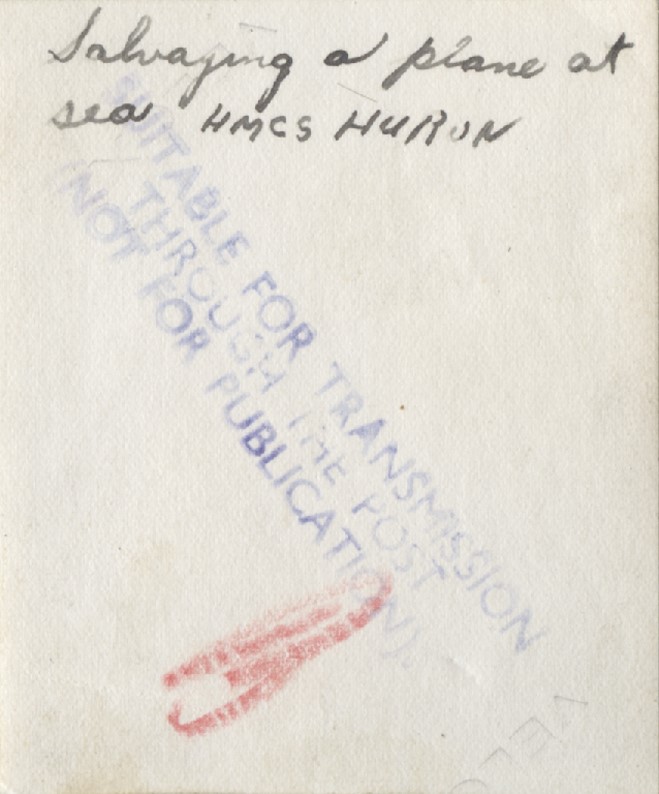 Salvaging a plane at
sea HMCS HURON
SUITABLE FOR TRANSMISSION
THROUGH THE POST
(NOT FOR PUBLICATION).